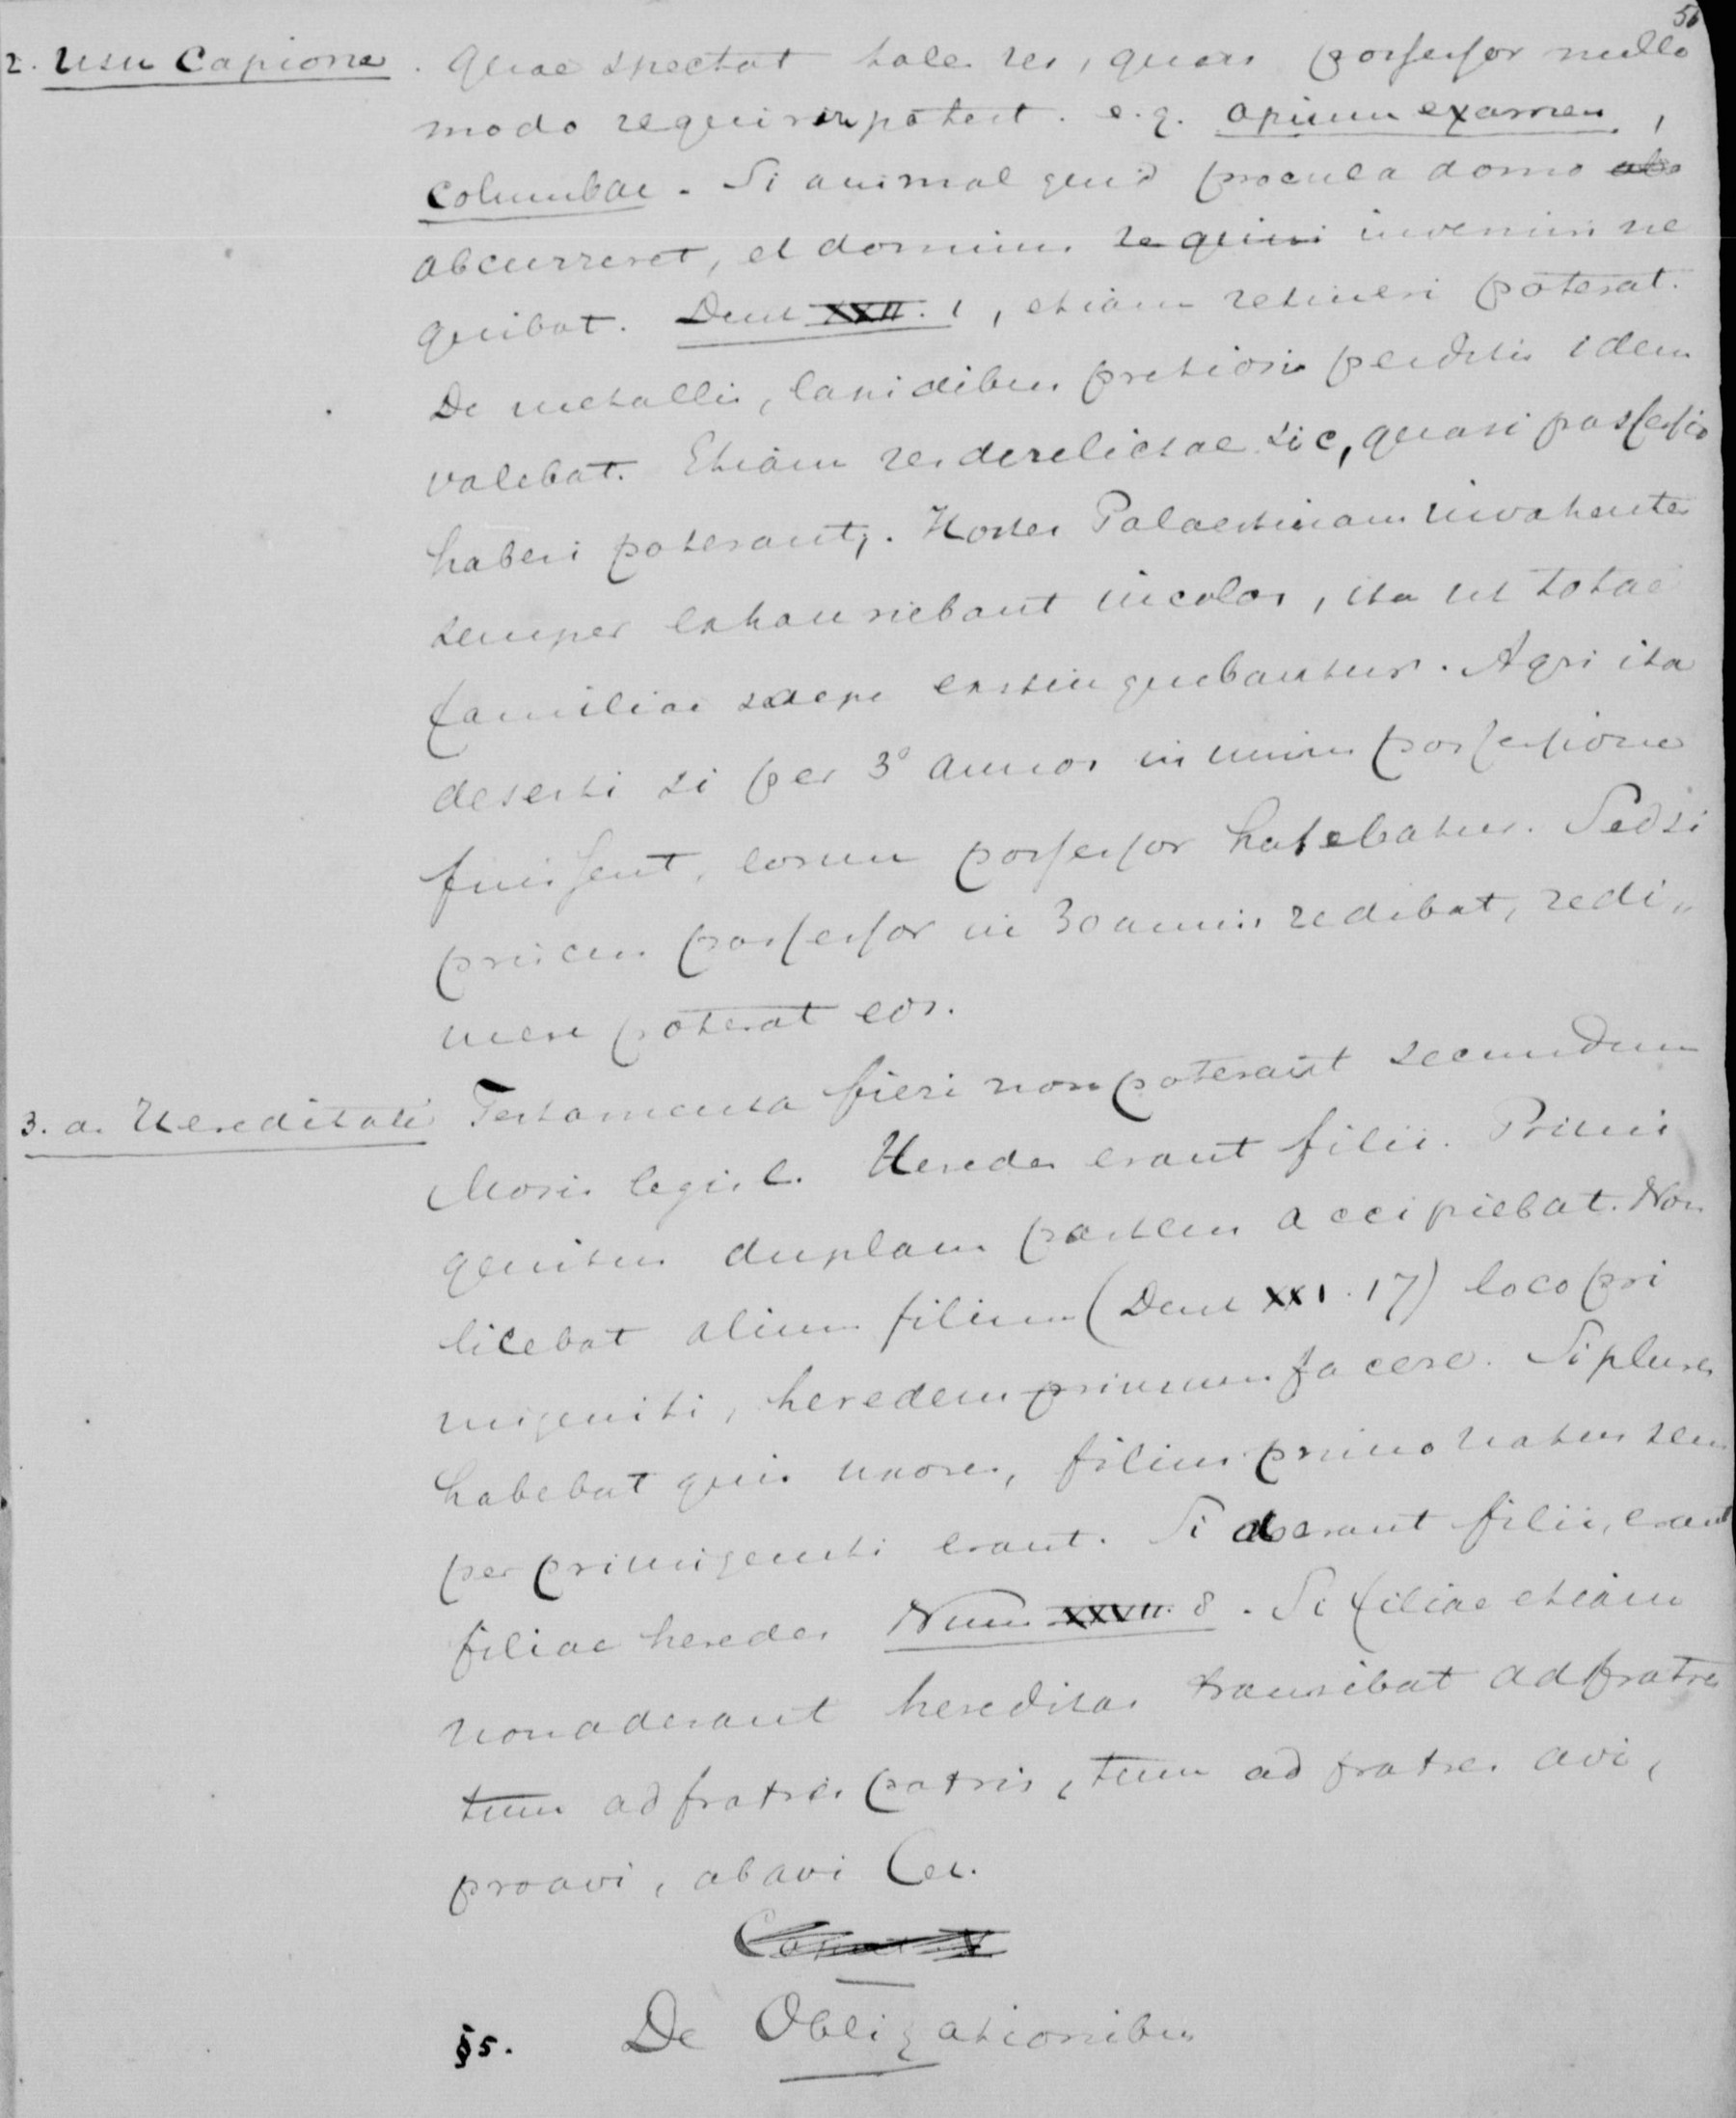 51
2. Usu Capione. Quae spectat tales res, quas possessor nullo
modo requirere potest. e.g. apium examen,
columbae. Si animal quid procul a domo
abcurreret, et dominus invenire ne
quibat. Deut XXII. 1, etiam retineri poterat.
De metallis, lapidibus pretiosis perditis idem
valebat. Etiam res derelictae sic, quasi possessio
haberi poterant. Hostes Palaestinam invahentes
semper exhauriebant incolas, ita ut totae
familiae saepe exstinguebantur. Agri ita
deserti si per 3° annos in unius possessione
fuissent, eorum possessor habebatur. Sed si
priscus possessor in 30 annis redibat, redi„
mere poterat eos.
3. a. Hereditate Testamenta fieri non poterant secundum
Mosis legisl. Heredes erant filii. Primi
genitus duplam partem accipiebat. Non
licebat alium filium (Deut XXI. 17) loco pri
migeniti, heredem primum facere. Si plures
habebat quis uxores, filius primo natus sem
per primigeniti erant. Si deerant filii, erant
filiae heredes Num XXVII. 8. Si filiae etiam
non aderant hereditas transibat ad fratres
tum ad fratres patris, tum ad fratres avi,
proavi, abavi Cet.
Caput V
§5. De Obligationibus